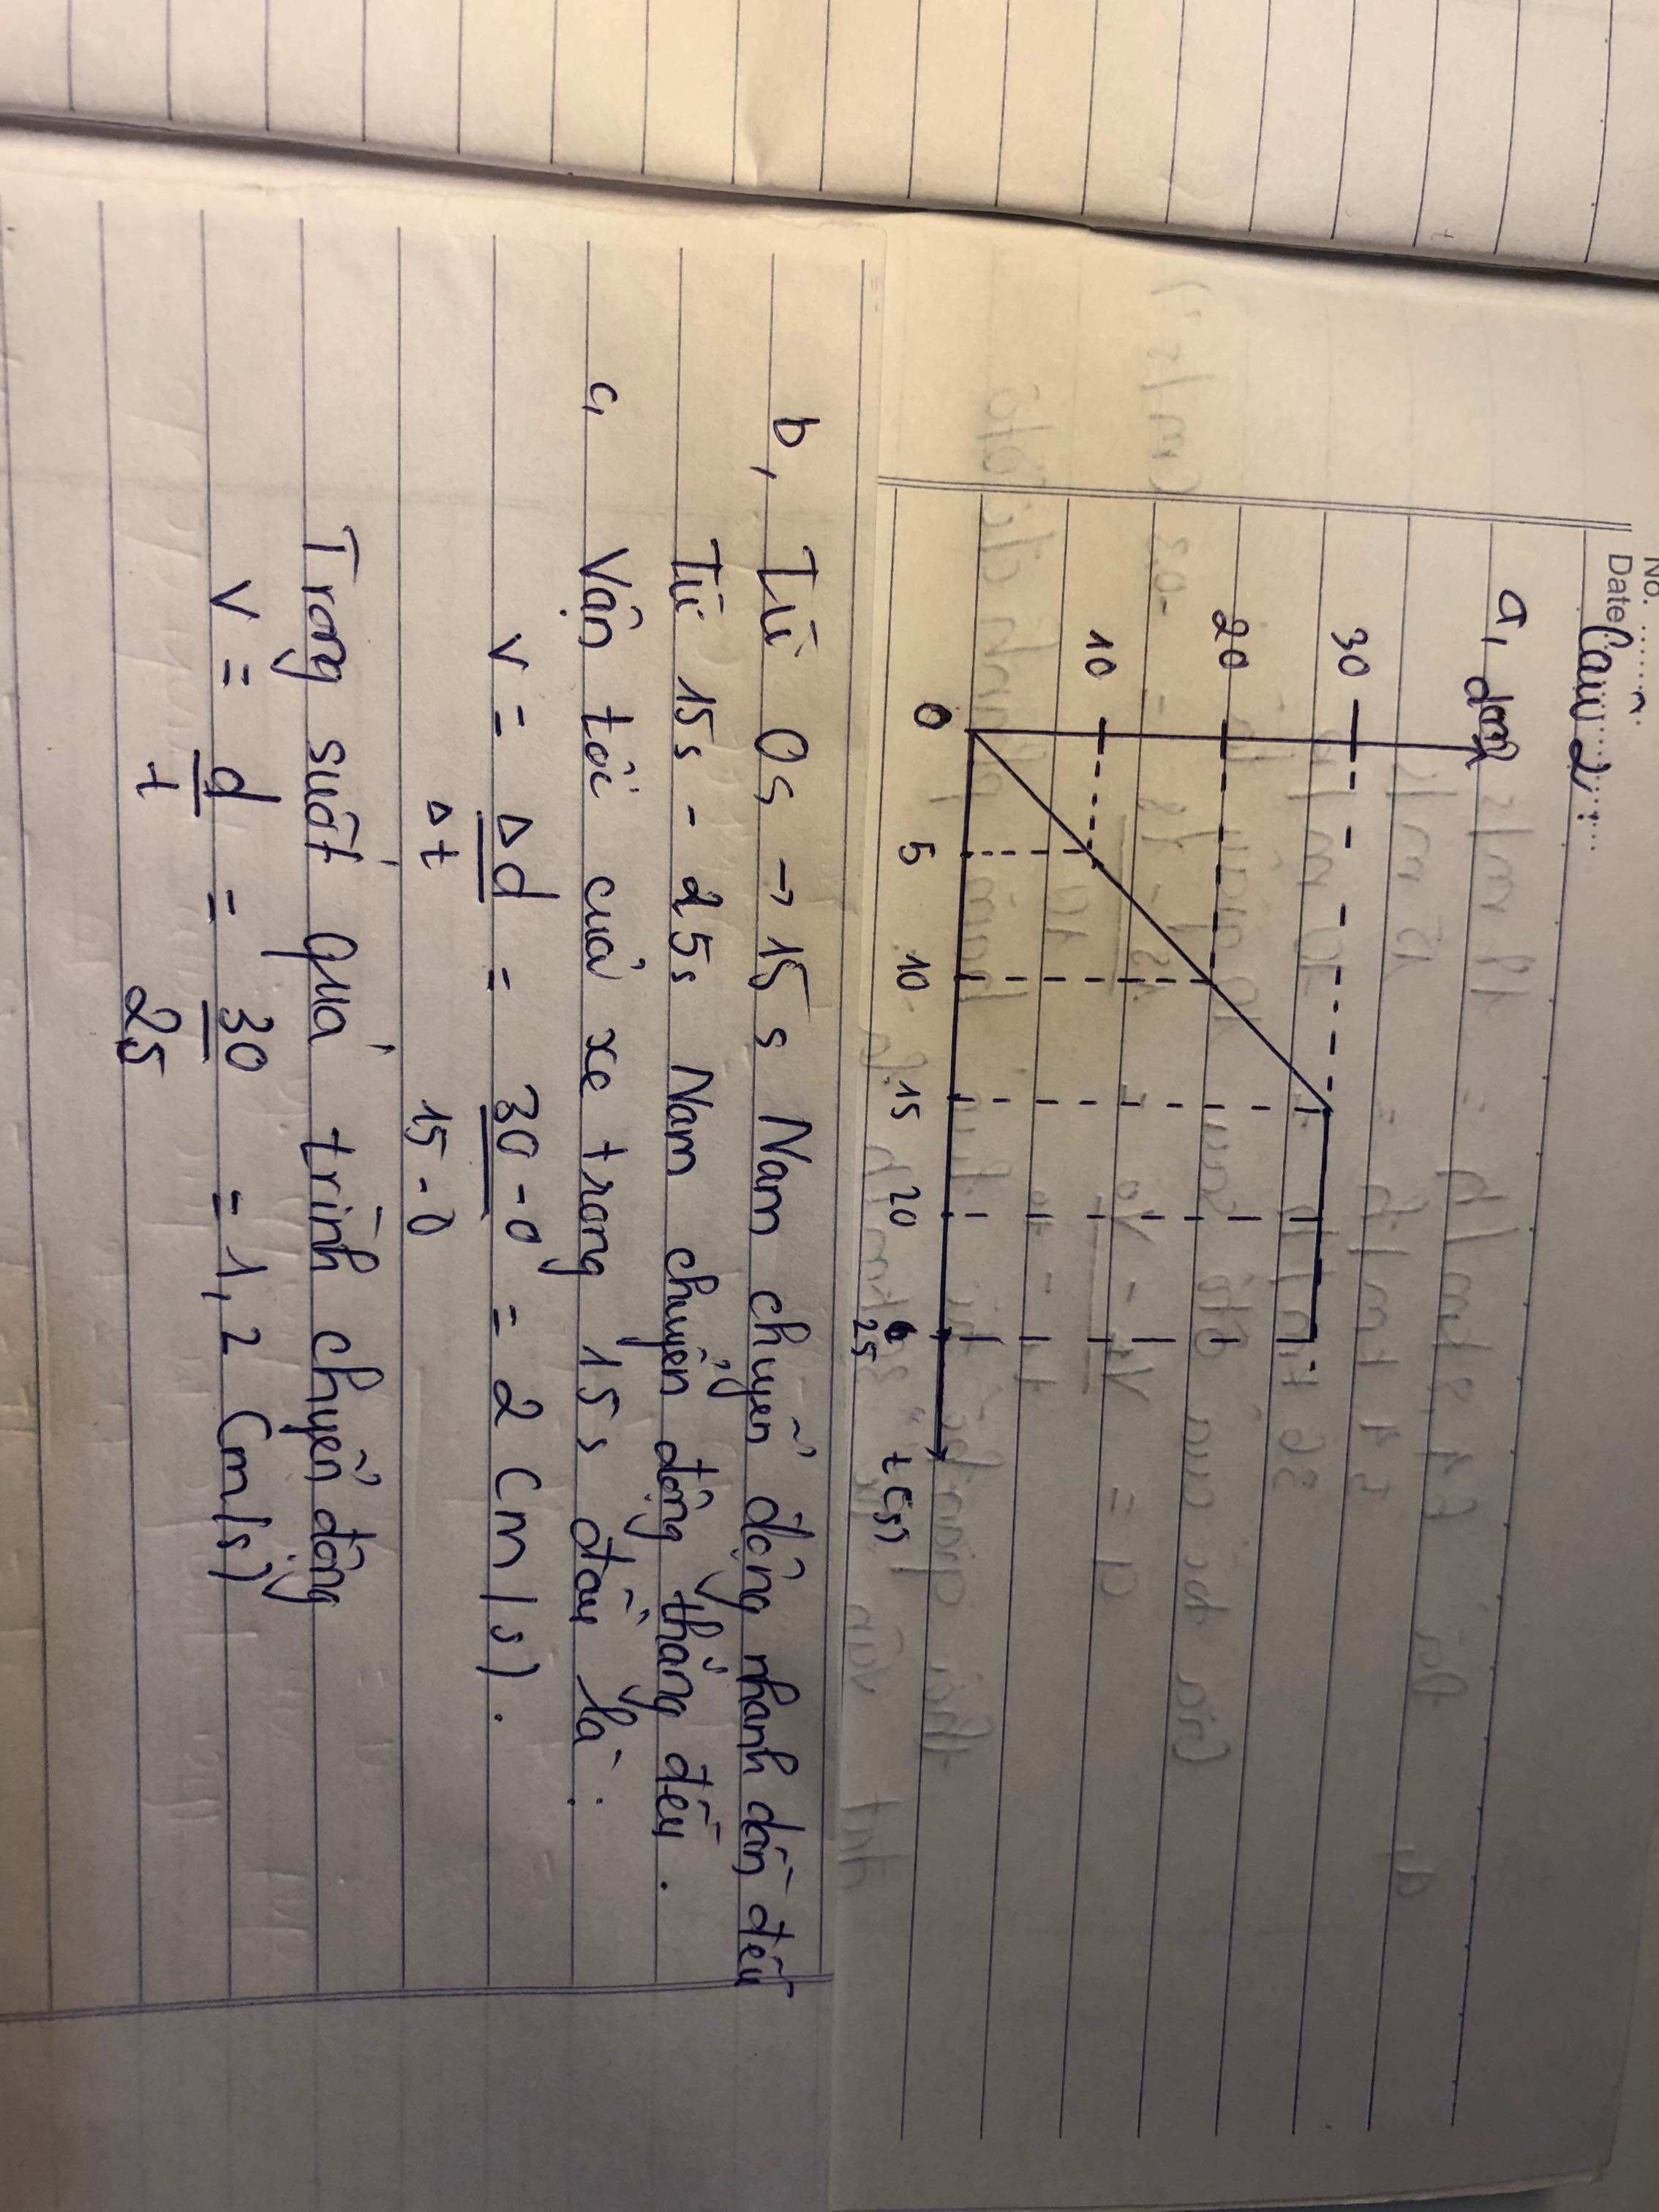 No.
Date
Câu 2:
a, d(m)
30
20
10
0 5 10 15 20 25 t (s)
b, Từ 0s → 15s Nam chuyển động nhanh dần đều
Từ 15s - 25s Nam chuyển động thẳng đều.
c, Vận tốc của xe trong 15s đầu là:
v = Δd / Δt = 30 - 0 / 15 - 0 = 2 (m/s).
Trong suốt quá trình chuyển động
v = d / t = 30 / 25 = 1,2 (m/s)